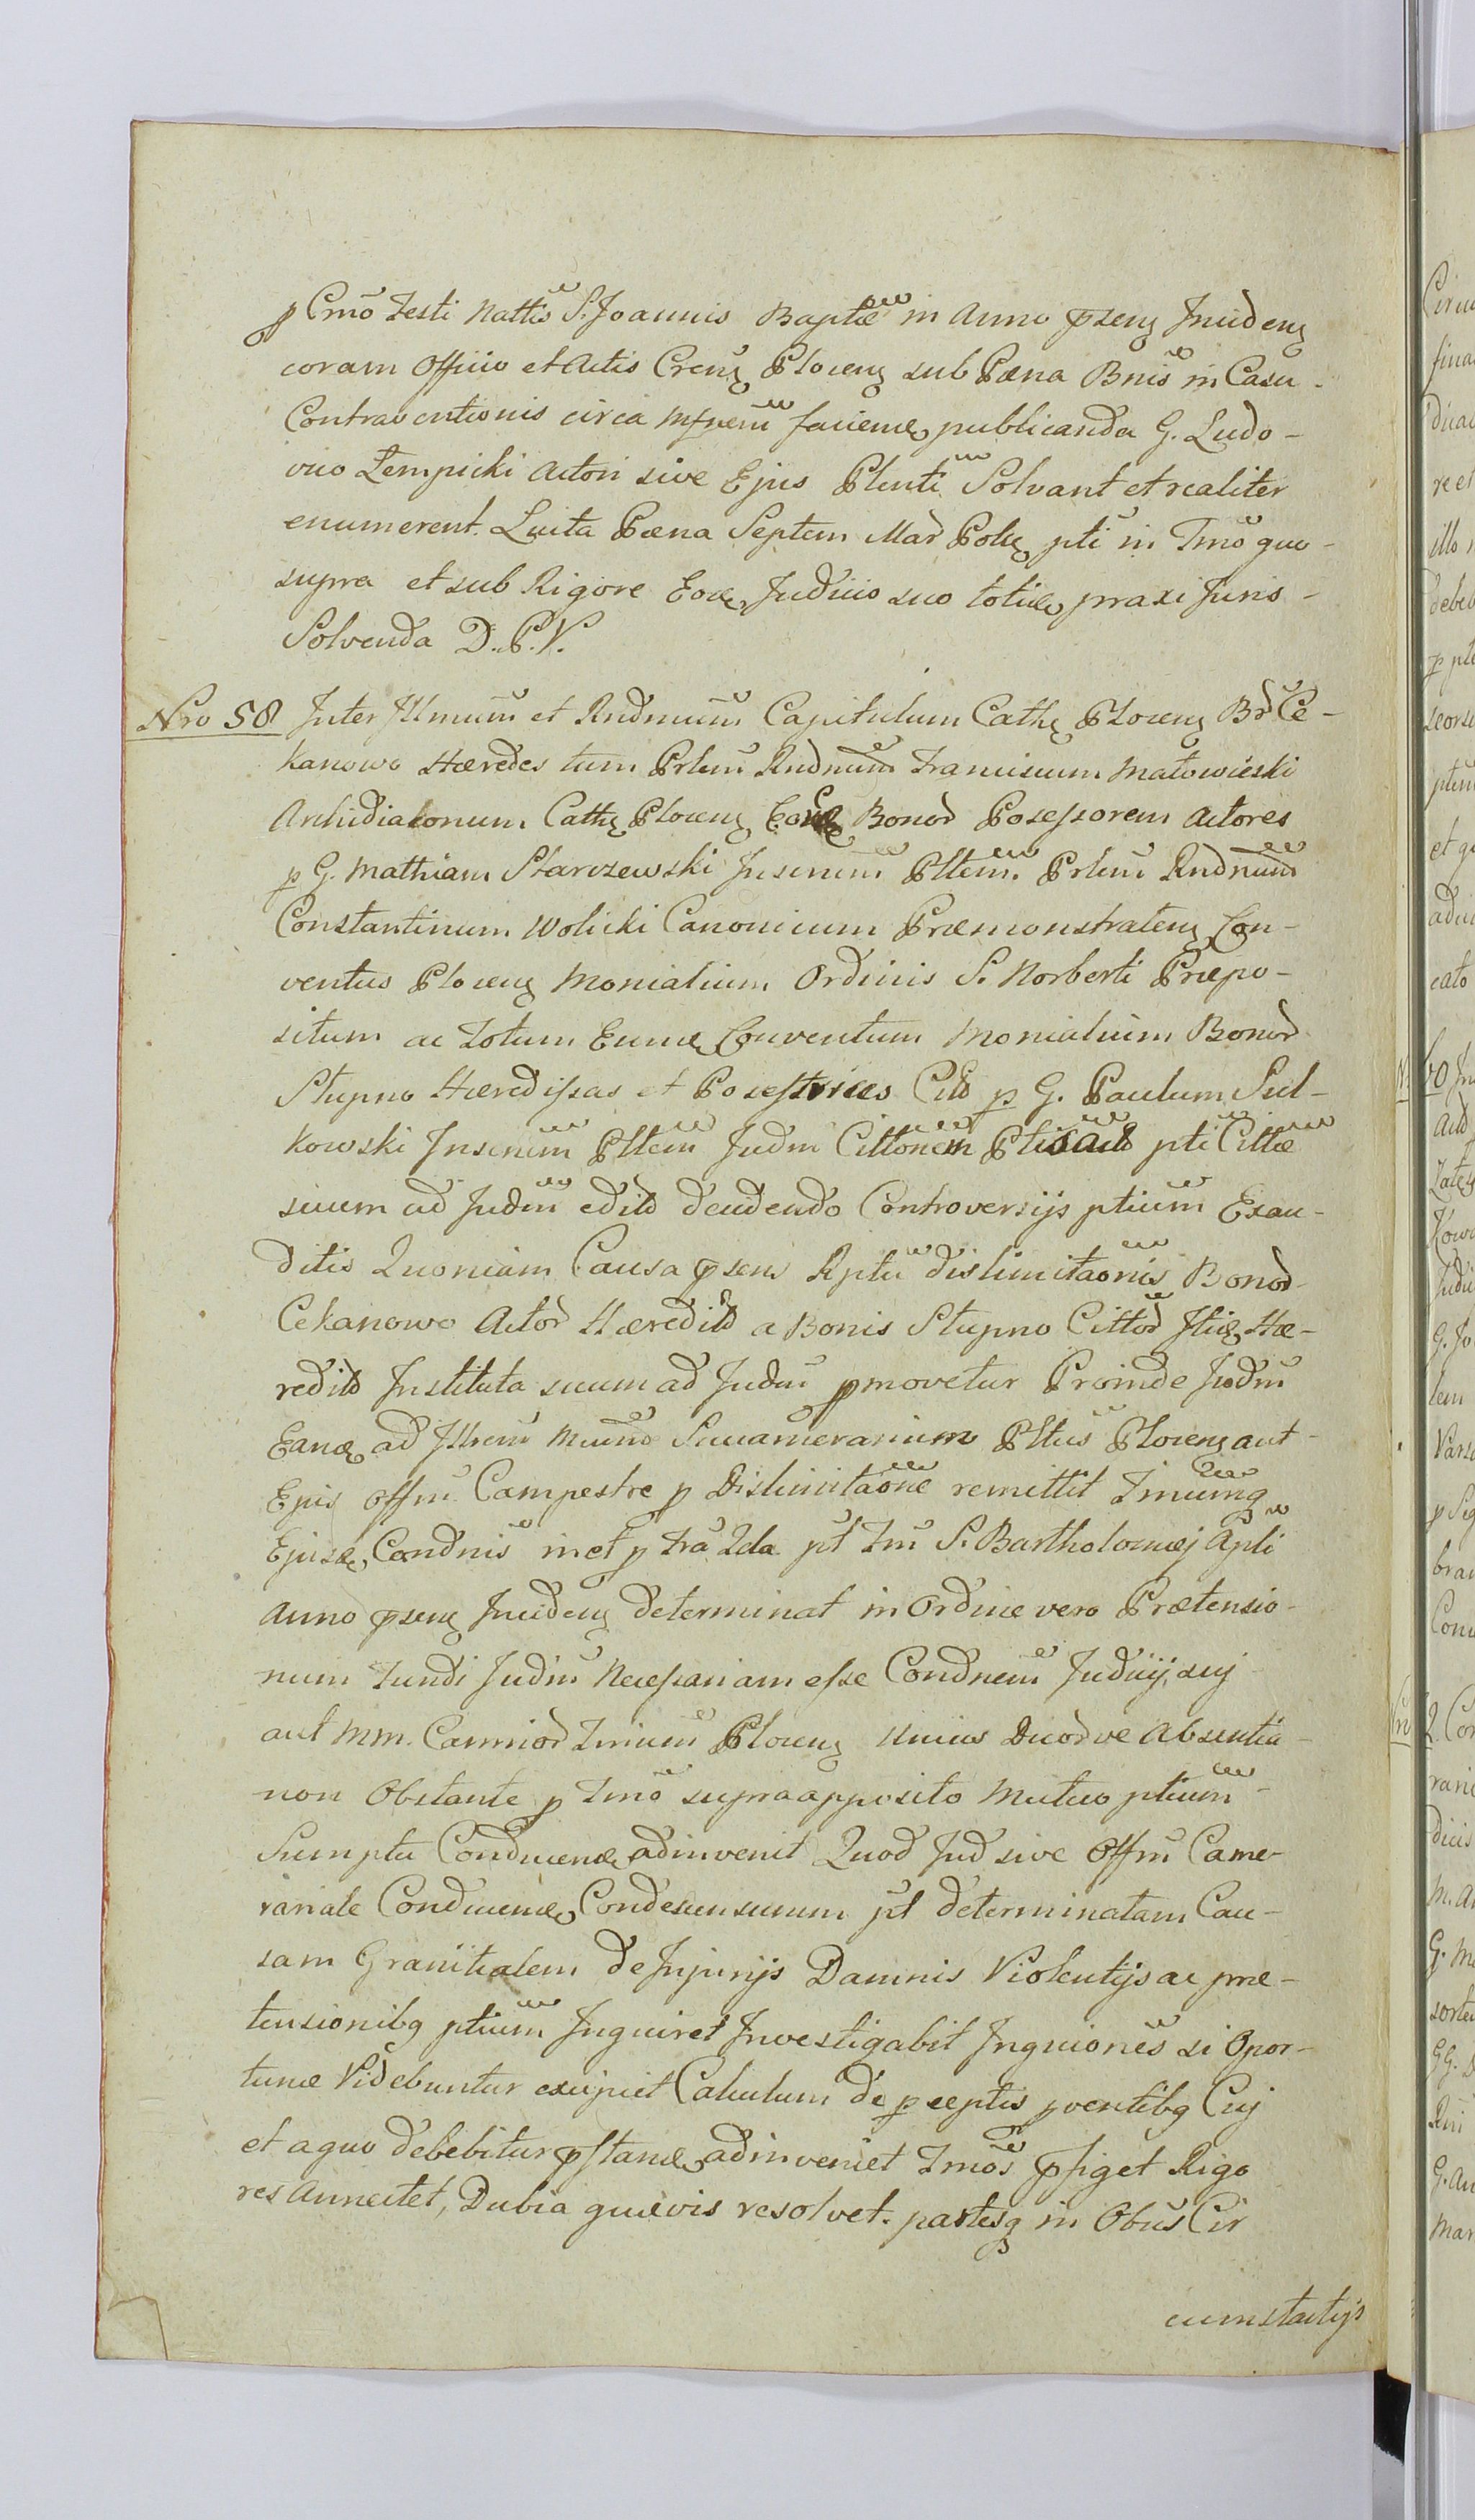 p Crmo Festi Nattis S. Joannis Baptæ in Anno psenꝫ Incidenꝫ
coram Officio et Actis Crenꝫ Plocenꝫ sub Pæna Bnis in Casu
Contraventionis circa faciend publicanda G. Ludo-
vico Łempicki Actori sive Ejus Plenti Solvant et realiter
enumerent. Luita Pæna Septem Mar Polię pti in Tmo quo
supra et sub Rigore Eod Judicio suo toties praxi Juris
Solvenda D. P. V.
Nro 58 Inter Illmum et Rndmum Capitulum Cathę Plocenꝫ Bd Ce-
kanowo Hæredes tum Prlem Rndnum Franciscum Małowieski
Archidiakonum Cathę Plocenꝫ Bonor Posessorem Actores
p G. Mathiam Starczewski Inscrium Pltem. Prlem Rndnum
Constantinum Wolicki Canonicum Præmonstratenꝫ Con-
ventus Plocenꝫ Monialium Ordinis S. Norberti Præpo-
situm ac Totum Eund Conventum Monialium Bonor
Stupno Hæredissas et Posestrices Citt p G. Paulum Sul-
kowski Inscrium Pltem Judm Cittonem pti Cittæ
suum ad Judm edit decidendo Controversijs ptium Exau-
ditis Quoniam Causa psens Rptu dislimitaonis Bonor
Cekanowo Actor Hæredit a Bonis Stupno Cittor Hæ-
redit Instituta suum ad Judm pmovetur Proinde Judm
Eand ad Illrem Mcum Succamerarium Pltus Plocenꝫ aut
Ejus Offm Campestre p Dislimitaone remittit Tmumq
Ejusd Condnis p Fra 2da pt Tm S. Bartholomæj Apli
Anno psenꝫ Incidenꝫ determinat in Ordine vero Prætensio-
num Fundi Judm Necessariam esse Condnem Judicij suj
aut MM. Camrior Trium Plocenꝫ Unius Duorve Absentia
non Obstante p Tmo supraapposito Mutuo ptium
Sumptu Conducend adinvenit Quod Jud sive Offm Came-
rariale Conducend Condescensurum pt determinatam Cau-
sam Granitialem de Injurijs Damnis Violentijs ac præ-
tensionibq ptium Inquiret Investigabit Inquiones si Opor-
tunæ Videbuntur excipiet Calculum de pceptis pventibq Cuj
et aquo debebitur pstand adinveniet Tmos pfiget Rigo
res Annectet, Dubia quævis resolvet. partesq in Obus Cir
cumstactijs